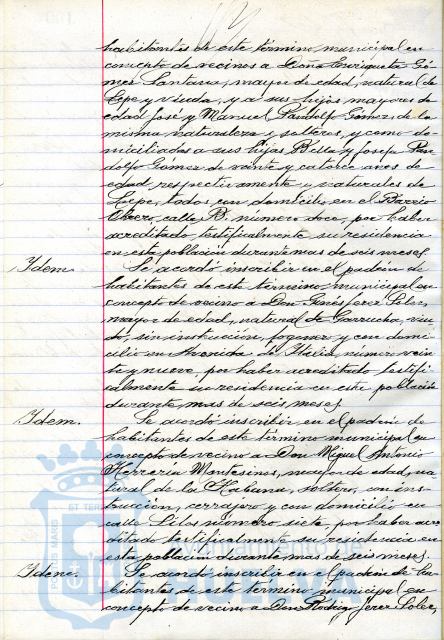 habitantes de este término municipal en
concepto de vecinos a Doña Enriqueta Gó-
mez Santana, mayor de edad, natural de
Lepe y viuda, y a sus hijos mayores de
edad José y Manuel Pandolfo Gómez, de la
misma naturaleza y solteros, y como do-
miciliados a sus hijas Bella y Josefa Pan
dolfo Gómez de veinte y catorce años de
edad respectivamente y naturales de
Lepe, todos con domicilio en el Barrio
Obrero, calle B. número doce, por haber
acreditado testificalmente su residencia
en esta población durante mas de seis meses.
Idem. Se acordó inscribir en el padrón de
habitantes de este término municipal en
concepto de vecino a Don Ginés Jerez Soler,
mayor de edad, natural de Garrucha, viu-
do, sin instrucción, fogonero y con domi-
cilio en Avenida de Italia, número vein
te y nueve, por haber acreditado testifi-
calmente su residencia en esta población
durante mas de seis meses.
Idem. Se acordó inscribir en el padrón de
habitantes de este término municipal en
concepto de vecino a Don Miguel Antonio
Herrería Montesinos, mayor de edad, na-
tural de la Habana, soltero, con ins-
trucción, cerrajero y con domicilio en
calle Lilos número siete, por haber acre
ditado testificalmente su residencia en
esta población durante mas de seis meses.
Idem. Se acordó inscribir en el padrón de ha-
bitantes de este término municipal en
concepto de vecino a Don Rodrigo Jerez Soler,